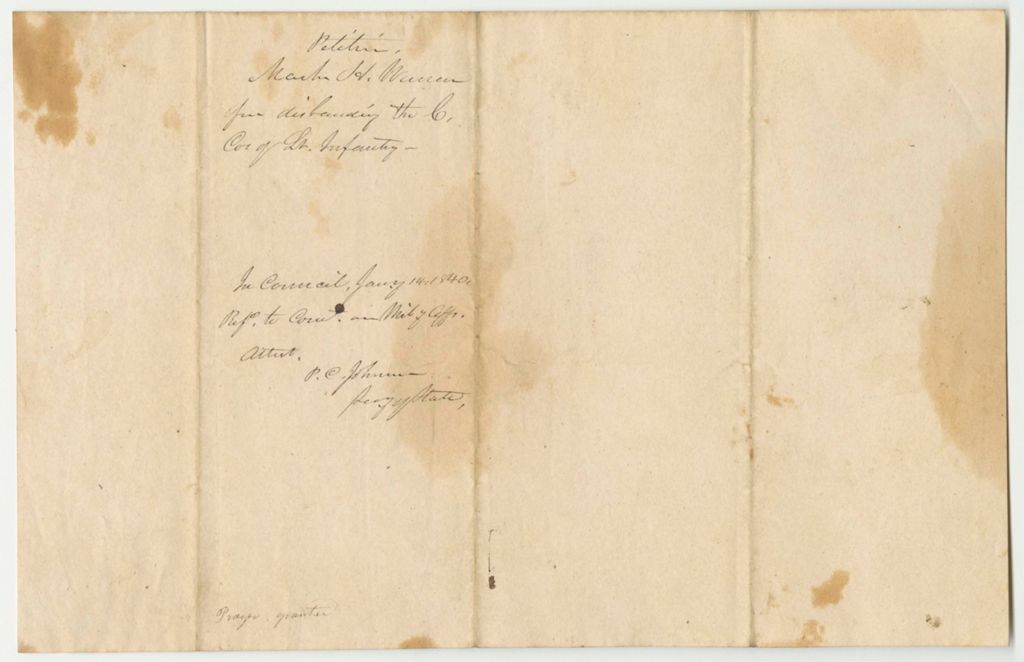 Petition,
Martin H. Warren
for disbanding the C.
Co. of Lt. Infantry –
In Council, Jany 14. 1840.
Refd. to Comt. on Mily Affs.
Attest.
P. C. Johnson
Secy of State,
Prayr. granted